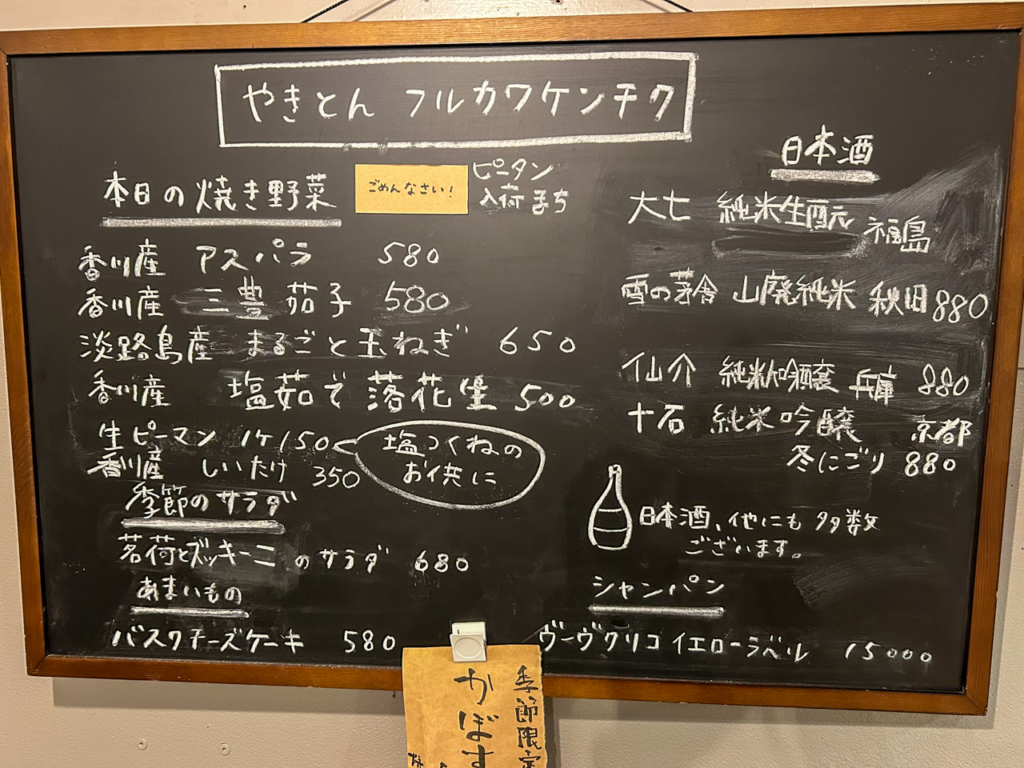 やきとん フルカワケンチク
本日の焼き野菜
ごめんなさい!
ピータン
入荷まち
香川産 アスパラ 580
香川産 三豊茄子 580
淡路島産 まるごと玉ねぎ 650
香川産 塩茹で落花生 500
生ピーマン 1ケ150
塩つくねの
お供に
香川産 しいたけ 350
季節のサラダ
茗荷とズッキーニのサラダ 680
あまいもの
バスクチーズケーキ 580
日本酒
大七 純米生酛 福島
雪の茅舎 山廃純米 秋田 880
仙介 純米吟醸 兵庫 880
十石 純米吟醸 京都
冬にごり 880
日本酒、他にも多数
ございます。
シャンパン
ヴーヴクリコ イエローラベル 15000
季節限定
かぼす